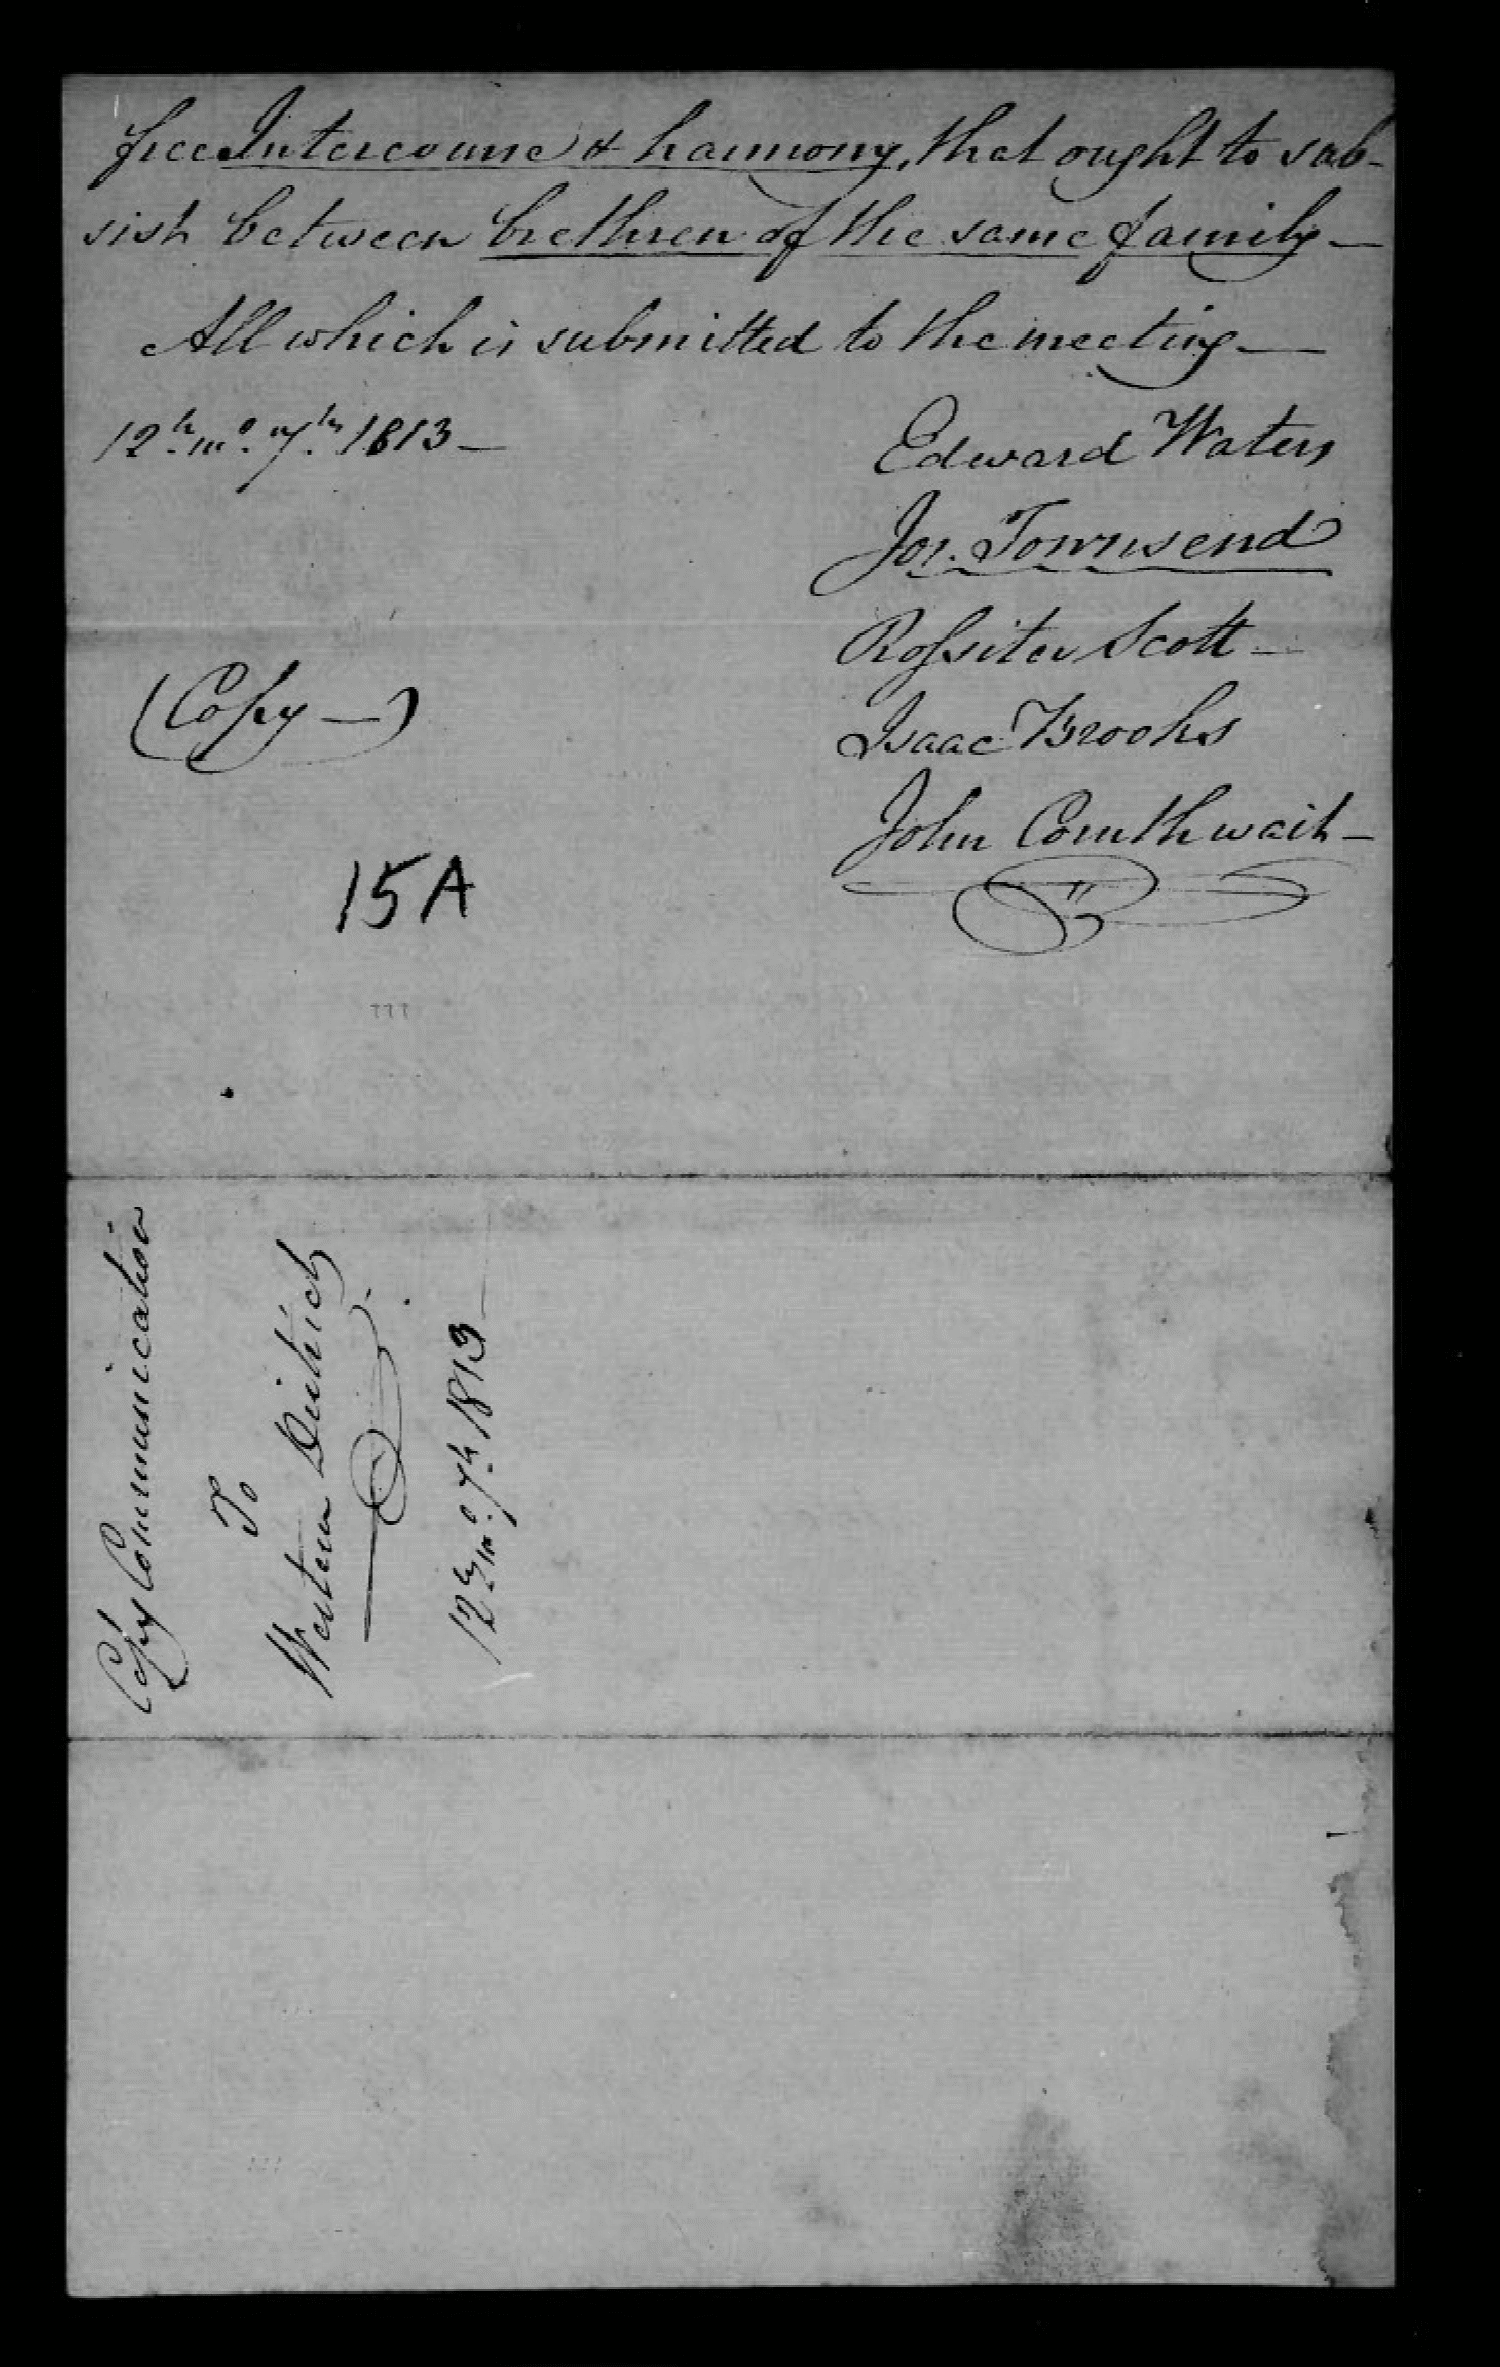 free Intercourse & harmony, that ought to sub-
sist between brethren of the same family—
All which is submitted to the meeting—
12th. mo. 7th. 1813—
Edward Waters
Jos. Townsend
Rossiter Scott—
Isaac Brooks
John Cornthwait—
(Copy—)
15A
Copy Communication
To
Western District
12th mo. 7th 1813—